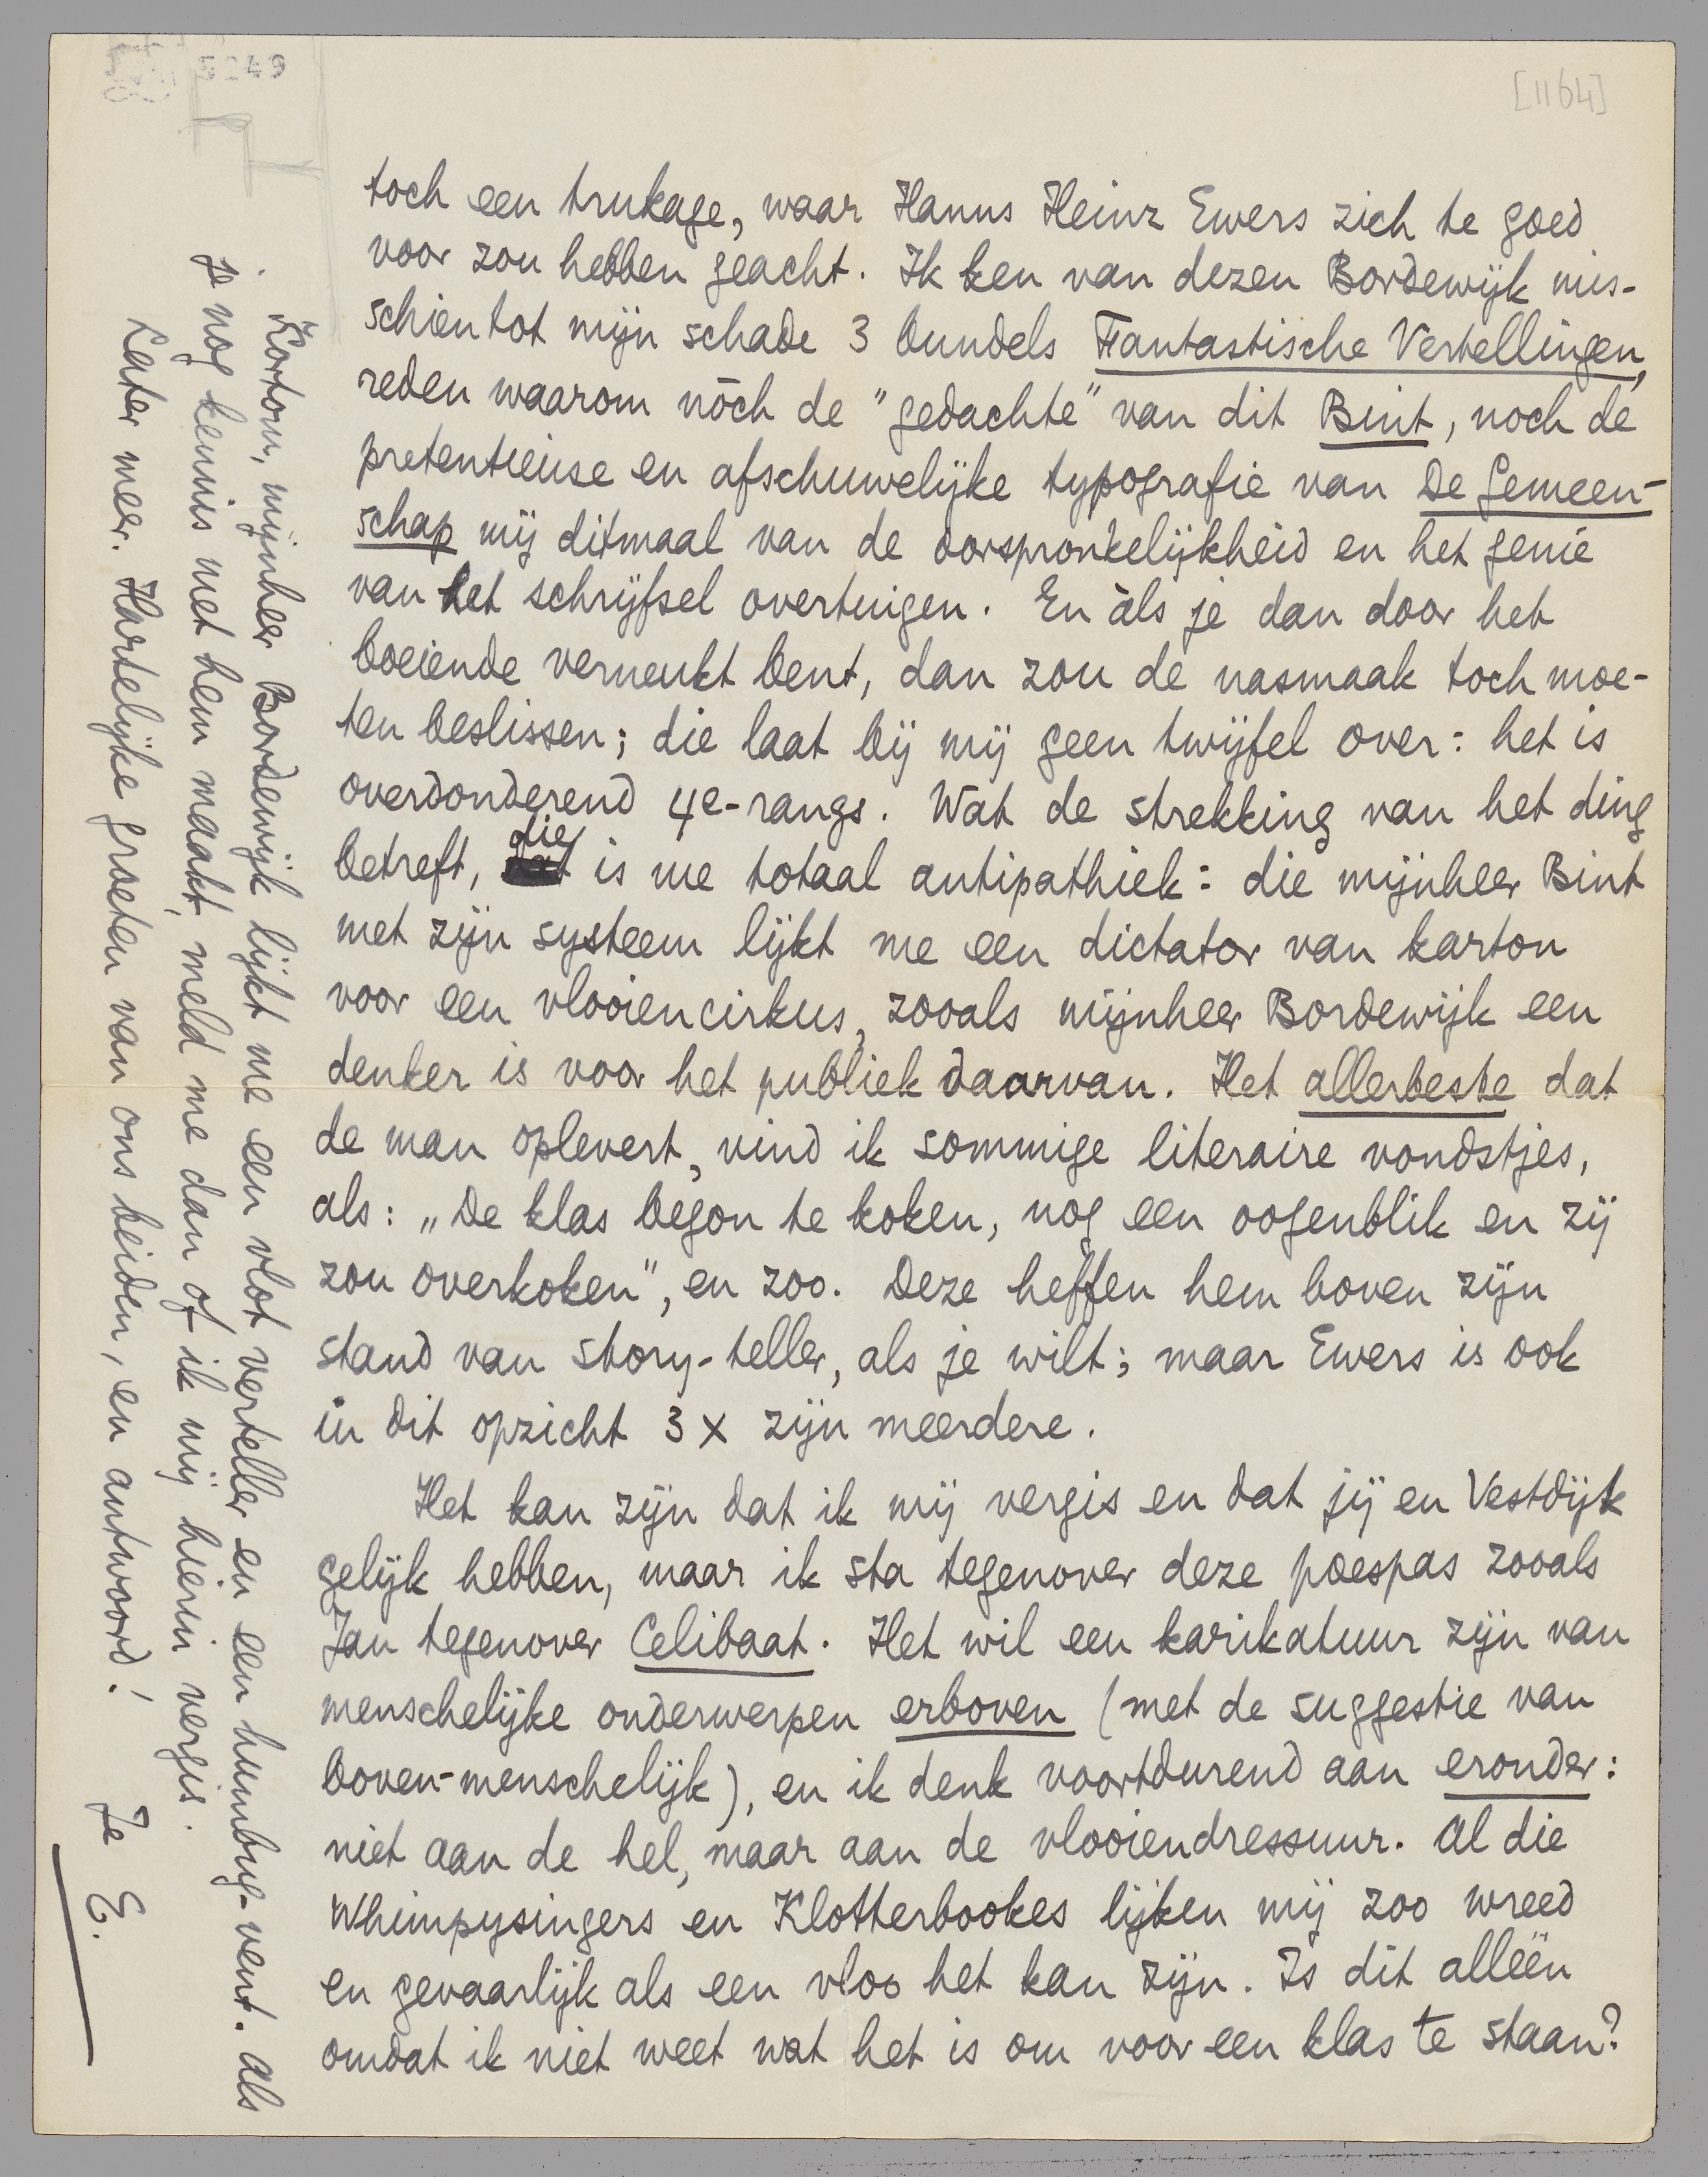 5249
[1164]
toch een trukage, waar Hanns Heinz Ewers zich te goed
voor zou hebben geacht. Ik ken van dezen Bordewijk mis-
schien tot mijn schade 3 bundels Fantastische Vertellingen,
reden waarom nòch de "gedachte" van dit Bint, noch de
pretentieuse en afschuwelijke typografie van De Gemeen-
schap mij ditmaal van de oorspronkelijkheid en het genie
van het schrijfsel overtuigen. En àls je dan door het
boeiende verneukt bent, dan zou de nasmaak toch moe-
ten beslissen; die laat bij mij geen twijfel over: het is
overdonderend 4e-rangs. Wat de strekking van het ding
betreft, die is me totaal antipathiek: die mijnheer Bint
met zijn systeem lijkt me een dictator van karton
voor een vlooiencirkus, zooals mijnheer Bordewijk een
denker is voor het publiek daarvan. Het allerbeste dat
de man oplevert, vind ik sommige literaire vondstjes,
als: „De klas begon te koken, nog een oogenblik en zij
zou overkoken", en zoo. Deze heffen hem boven zijn
stand van story-teller, als je wilt; maar Ewers is ook
in dit opzicht 3 x zijn meerdere.
Het kan zijn dat ik mij vergis en dat jij en Vestdijk
gelijk hebben, maar ik sta tegenover deze poespas zooals
Jan tegenover Celibaat. Het wil een karikatuur zijn van
menschelijke onderwerpen erboven (met de suggestie van
boven-menschelijk), en ik denk voortdurend aan eronder:
niet aan de hel, maar aan de vlooiendressuur. Al die
Whimpysingers en Klotterbookes lijken mij zoo wreed
en gevaarlijk als een vloo het kan zijn. Is dit alléén
omdat ik niet weet wat het is om voor een klas te staan?
Kortom, mijnheer Bordewijk lijkt me een vlot verteller en een humbug-vent. Als
je nog kennis met hem maakt, meld me dan of ik mij hierin vergis.
Later meer. Hartelijke groeten van ons beiden, en antwoord!
Je E.